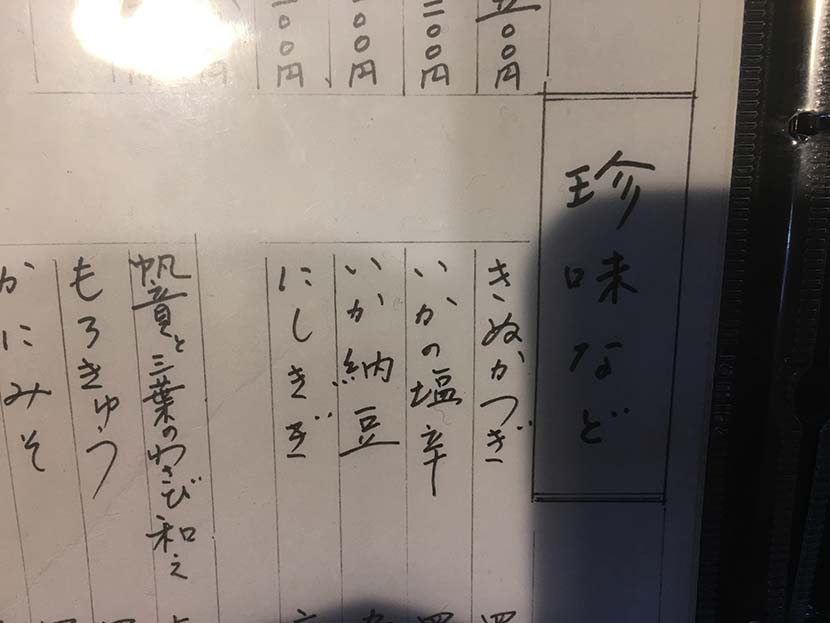 珍味など
五〇〇円
二〇〇円
〇〇円
〇〇円
円
きぬかつぎ
いかの塩辛
いか納豆
にしきぎ
帆立貝と三葉のわさび和え
もろきゅう
かにみそ